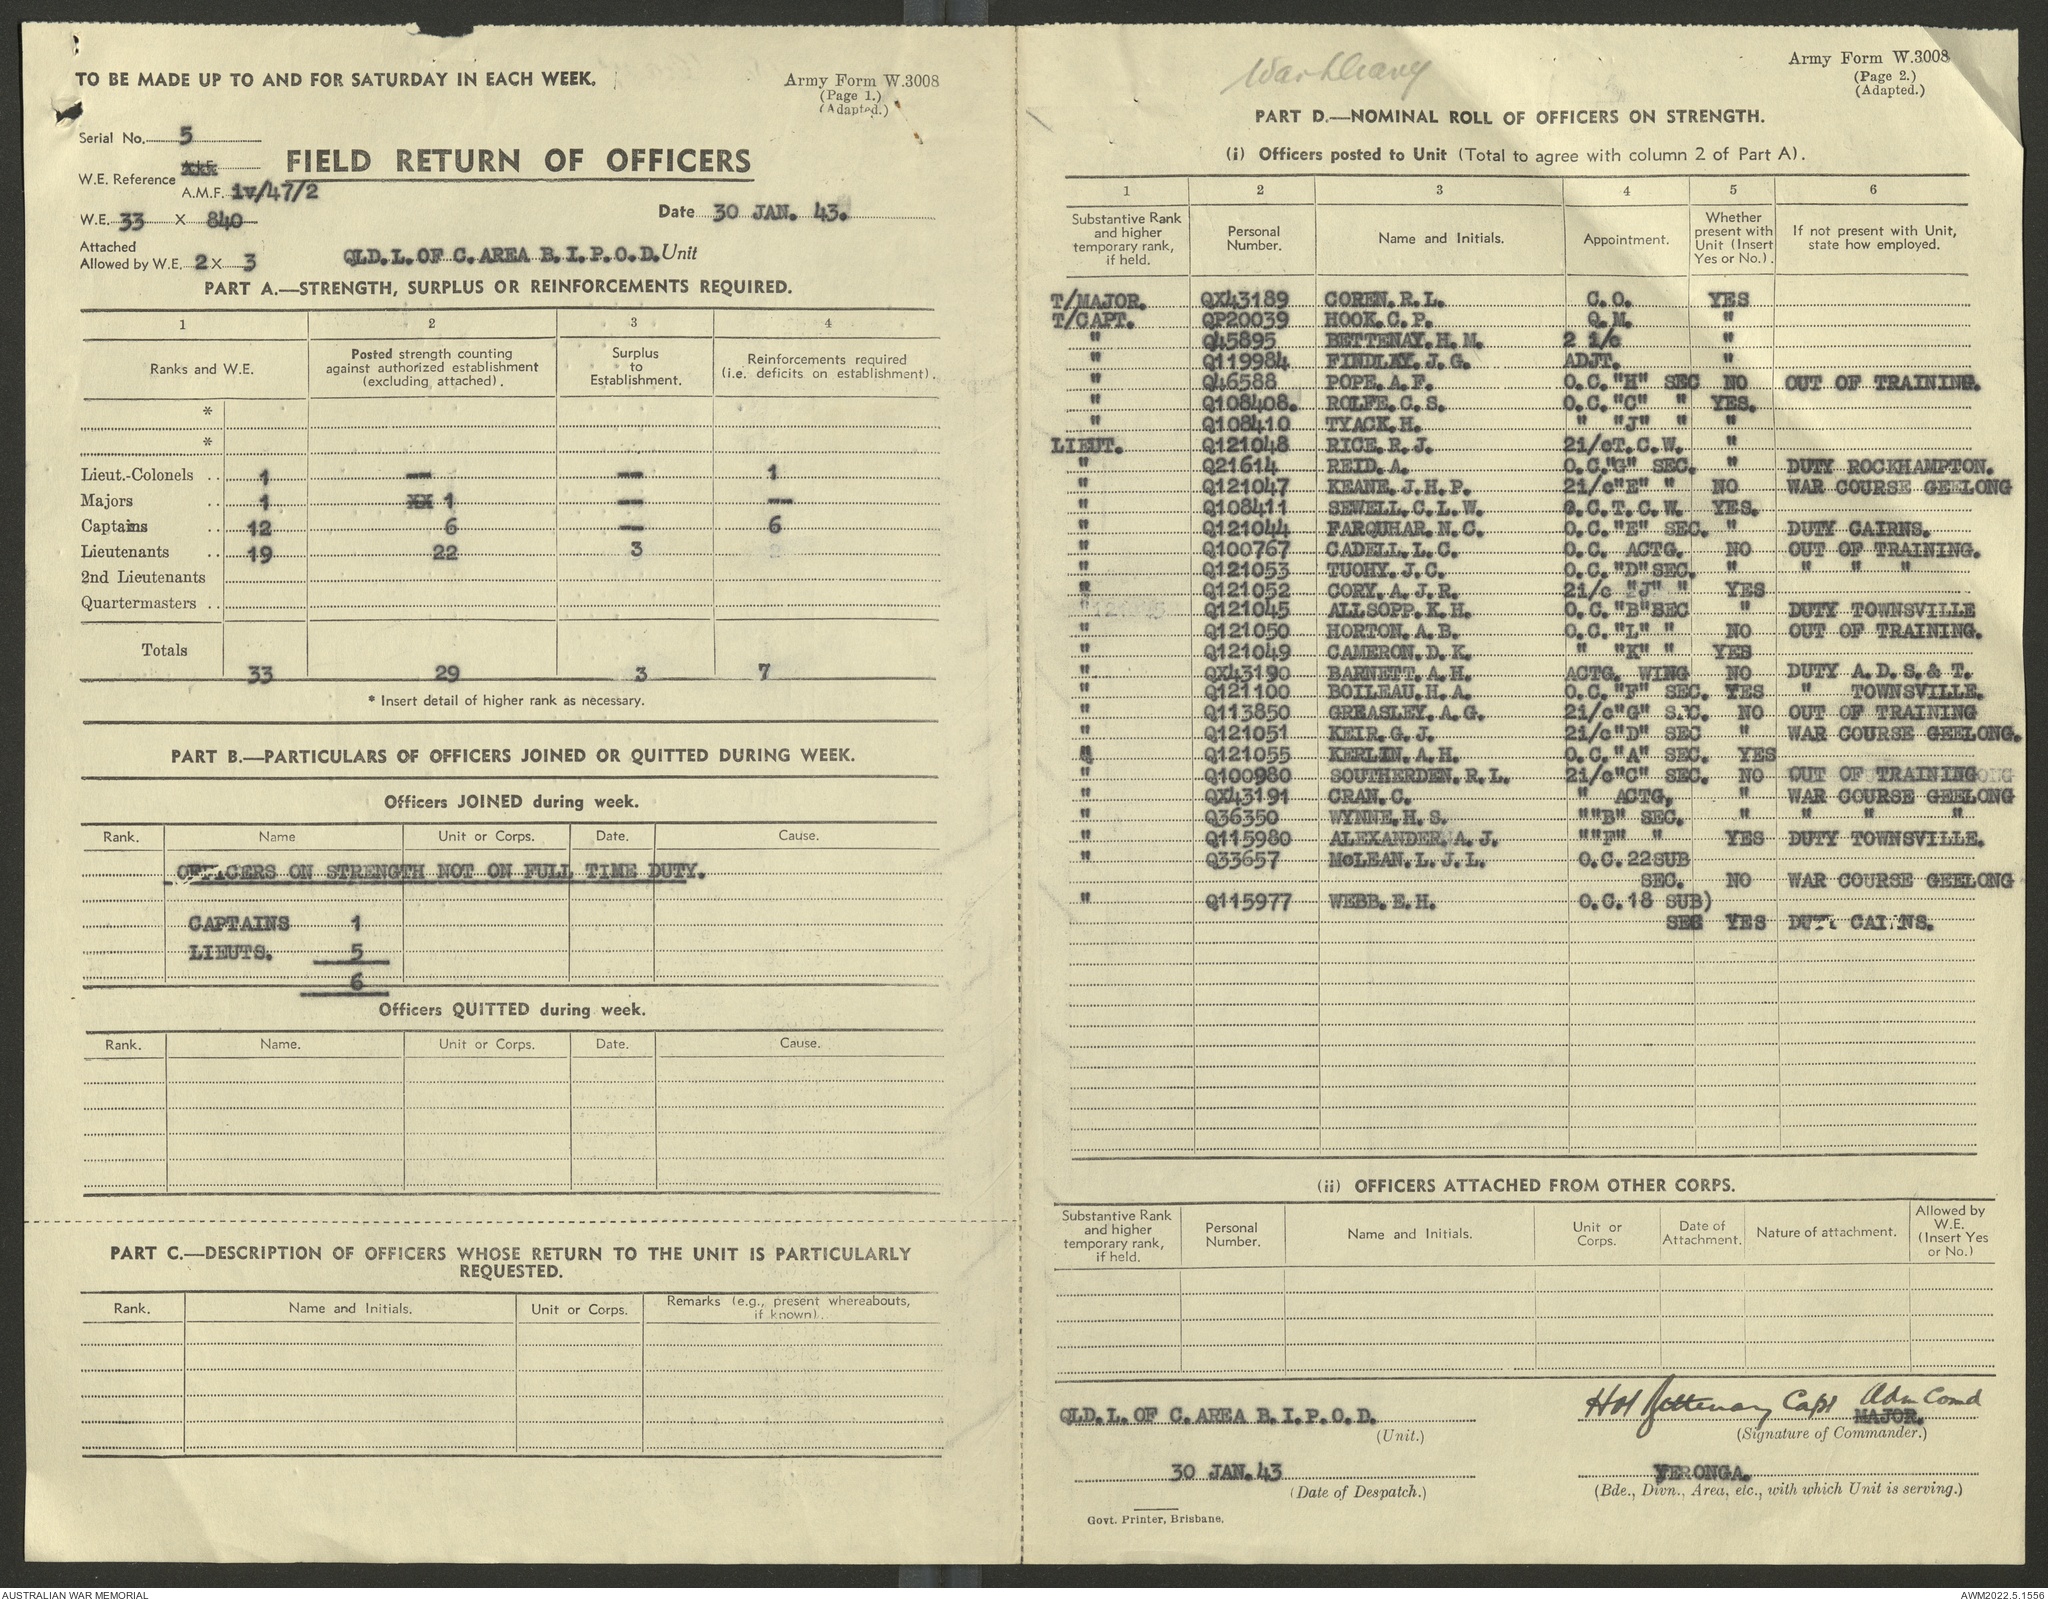 TO BE MADE UP TO AND FOR SATURDAY IN EACH WEEK.
Army Form W.3008
(Page 1.)
(Adapted.)
Serial No. 5
FIELD RETURN OF OFFICERS
W.E. Reference
A.M.F. iv/47/2
W.E. 33 X 840
Date 30 JAN. 43.
Attached
Allowed by W.E. 2 X 3
QLD.L.OF C.AREA B.I.P.O.D. Unit
PART A.—STRENGTH, SURPLUS OR REINFORCEMENTS REQUIRED.
1 2 3 4
Ranks and W.E. | Posted strength counting against authorized establishment (excluding attached). | Surplus to Establishment. | Reinforcements required (i.e. deficits on establishment).
*
*
Lieut.-Colonels .. 1 — — 1
Majors .. 1 XX 1 — —
Captains .. 12 6 — 6
Lieutenants .. 19 22 3
2nd Lieutenants
Quartermasters ..
Totals 33 29 3 7
* Insert detail of higher rank as necessary.
PART B.—PARTICULARS OF OFFICERS JOINED OR QUITTED DURING WEEK.
Officers JOINED during week.
Rank. Name Unit or Corps. Date. Cause.
OFFICERS ON STRENGTH NOT ON FULL TIME DUTY.
CAPTAINS 1
LIEUTS. 5
6
Officers QUITTED during week.
Rank. Name. Unit or Corps. Date. Cause.
PART C.—DESCRIPTION OF OFFICERS WHOSE RETURN TO THE UNIT IS PARTICULARLY
REQUESTED.
Rank. Name and Initials. Unit or Corps. Remarks (e.g., present whereabouts, if known).
Army Form W.3008
(Page 2.)
(Adapted.)
PART D.—NOMINAL ROLL OF OFFICERS ON STRENGTH.
(i) Officers posted to Unit (Total to agree with column 2 of Part A).
1 2 3 4 5 6
Substantive Rank and higher temporary rank, if held. | Personal Number. | Name and Initials. | Appointment. | Whether present with Unit (Insert Yes or No.). | If not present with Unit, state how employed.
T/MAJOR. QX43189 COREN.R.L. C.O. YES
T/CAPT. QP20039 HOOK.C.P. Q.M. "
" Q45895 BETTENAY.H.M. 2 i/c "
" Q119984 FINDLAY.J.G. ADJT. "
" Q46588 POPE.A.F. O.C."H" SEC NO OUT OF TRAINING.
" Q108408. ROLFE.C.S. O.C."C" " YES.
" Q108410 TYACK.H. " "J" " "
LIEUT. Q121048 RICE.R.J. 2i/cT.C.W. "
" Q21614 REID.A. O.C."G" SEC. " DUTY ROCKHAMPTON.
" Q121047 KEANE.J.H.P. 2i/c"E" " NO WAR COURSE GEELONG
" Q108411 SEWELL.C.L.W. O.C.T.C.W. YES.
" Q121044 FARQUHAR.N.C. O.C."E" SEC. " DUTY CAIRNS.
" Q100767 CADELL.L.C. O.C. ACTG. NO OUT OF TRAINING.
" Q121053 TUOHY.J.C. O.C."D"SEC. " " " "
" Q121052 CORY.A.J.R. 2i/c "J" " YES
" Q121045 ALLSOPP.K.H. O.C."B"SEC " DUTY TOWNSVILLE
" Q121050 HORTON.A.B. O.C."L" " NO OUT OF TRAINING.
" Q121049 CAMERON.D.K. " "K" " YES
" QX43190 BARNETT.A.H. ACTG. WING NO DUTY A.D.S.& T.
" Q121100 BOILEAU.H.A. O.C."F" SEC. YES " TOWNSVILLE.
" Q113850 GREASLEY.A.G. 2i/c"G" SEC. NO OUT OF TRAINING
" Q121051 KEIR.G.J. 2i/c"D" SEC " WAR COURSE GEELONG.
" Q121055 KERLIN.A.H. O.C."A" SEC. YES
" Q100980 SOUTHERDEN.R.L. 2i/c"C" SEC. NO OUT OF TRAINING
" QX43191 CRAN.C. " ACTG, " WAR COURSE GEELONG
" Q36350 WYNNE.H.S. ""B" SEC. " " " "
" Q115980 ALEXANDER.A.J. ""F" " YES DUTY TOWNSVILLE.
" Q33657 McLEAN.L.J.L. O.C.22SUB
SEC. NO WAR COURSE GEELONG
" Q115977 WEBB.E.H. O.C.18 SUB)
SEC YES DUTY CAIRNS.
(ii) OFFICERS ATTACHED FROM OTHER CORPS.
Substantive Rank and higher temporary rank, if held. | Personal Number. | Name and Initials. | Unit or Corps. | Date of Attachment. | Nature of attachment. | Allowed by W.E. (Insert Yes or No.)
QLD.L.OF C.AREA B.I.P.O.D.
(Unit.)
HM Bettenay Capt Adm Comd
MAJOR.
(Signature of Commander.)
30 JAN.43
(Date of Despatch.)
YERONGA.
(Bde., Divn., Area, etc., with which Unit is serving.)
Govt. Printer, Brisbane.
AUSTRALIAN WAR MEMORIAL
AWM2022.5.1556